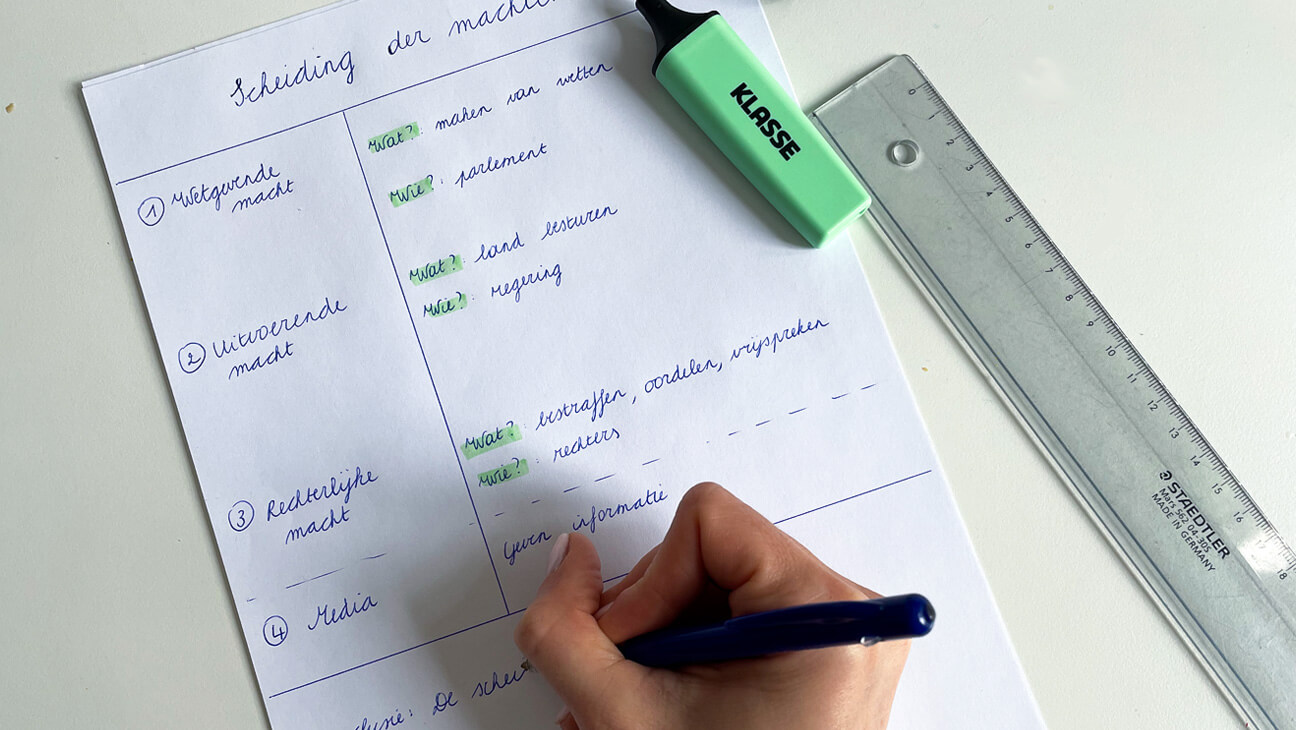 Scheiding der machten
① Wetgevende
macht
Wat? : maken van wetten
Wie? : parlement
② Uitvoerende
macht
Wat? : land besturen
Wie? : regering
③ Rechterlijke
macht
Wat? : bestraffen, oordelen, vrijspreken
Wie? : rechters
④ Media
Geven informatie
De schei
KLASSE
0 1 2 3 4 5 6 7 8 9 10 11 12 13 14 15 16 18
STAEDTLER
Mars 562 04-30S
MADE IN GERMANY